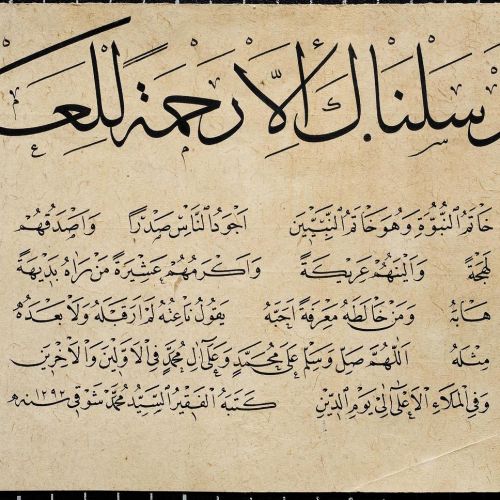 رْسَلْنَاكَ اِلَّا رَحْمَةً لِلْعَـ
خَاتَمُ النُّبُوَّةِ وَهُوَ خَاتَمُ النَّبِيّينَ اَجْوَدُ النَّاسِ صَدْرًا وَاَصْدَقُهُمْ
لَهْجَةً وَاَلْيَنُهُمْ عَرِيكَةً وَاَكْرَمُهُمْ عَشِيرَةً مَنْ رَاٰهُ بَدِيهَةً
هَابَهُ وَمَنْ خَالَطَهُ مَعْرِفَةً اَحَبَّهُ يَقُولُ نَاعِتُهُ لَمْ اَرَ قَبْلَهُ وَلَا بَعْدَهُ
مِثْلَهُ اَللّٰهُمَّ صَلِّ وَسَلِّمْ عَلٰى مُحَمَّدٍ وَعَلٰى اٰلِ مُحَمَّدٍ فِى الْاَوَّلِينَ وَالْاٰخِرِينَ
وَفِى الْمَلَاءِ الْاَعْلٰى اِلٰى يَوْمِ الدِّينِ كَتَبَهُ الْفَقِيرُ السَّيِّدُ مُحَمَّد شَوْقِى سنه ١٢٩٢